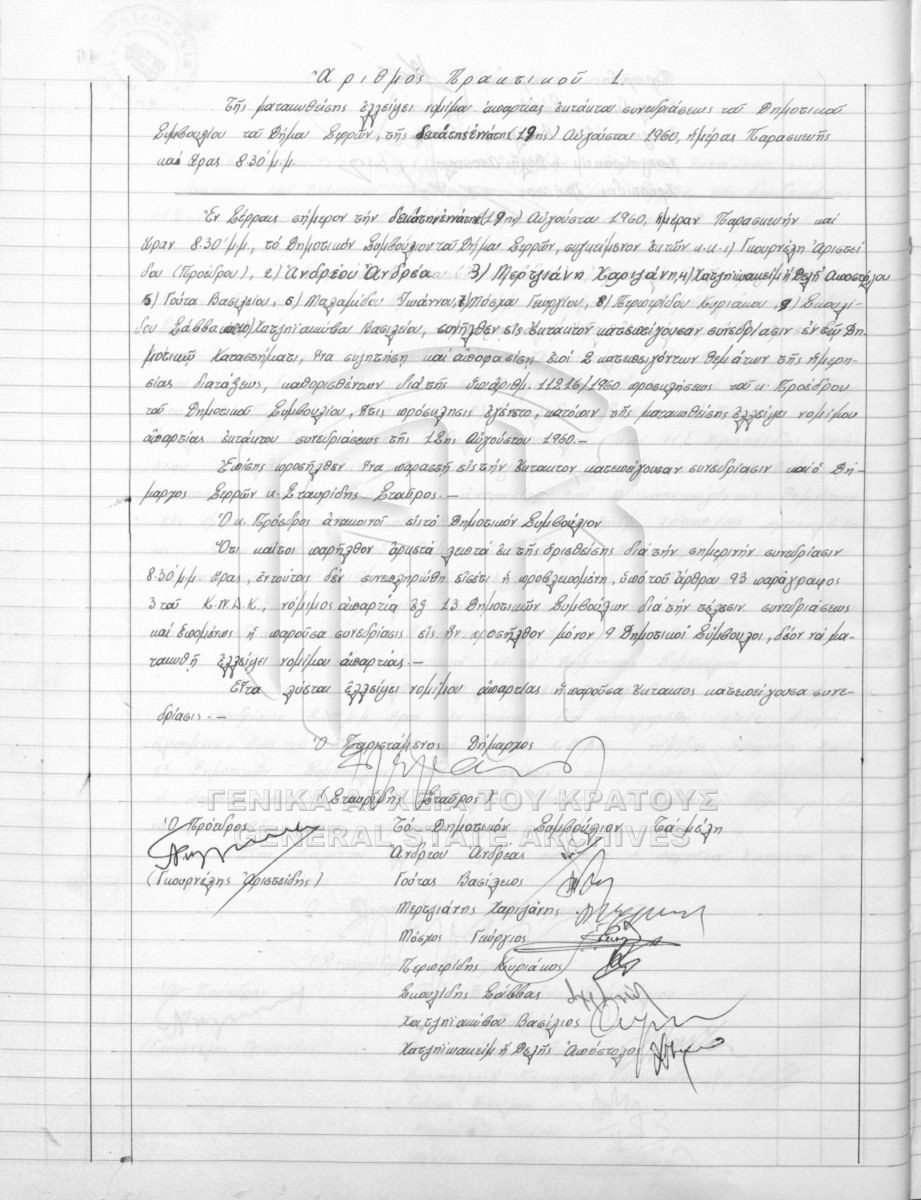 Ἀριθμός Πρακτικοῦ 1.
Τῆς ματαιωθείσης ἐλλείψει νομίμου ἀπαρτίας ἐκτάκτου συνεδριάσεως τοῦ Δημοτικοῦ
Συμβουλίου τοῦ Δήμου Σερρῶν, τῆς δεκάτης ἐνάτης (19ης) Αὐγούστου 1960, ἡμέρας Παρασκευῆς
καί ὥρας 8.30' μ.μ.
Ἐν Σέρραις σήμερον τήν δεκάτην ἐνάτην (19ην) Αὐγούστου 1960, ἡμέραν Παρασκευήν καί
ὥραν 8.30' μ.μ., τό Δημοτικόν Συμβούλιον τοῦ Δήμου Σερρῶν, συγκείμενον ἐκ τῶν κ.κ. 1) Γκουρνέλη Ἀριστεί
δου (Προέδρου), 2) Ἀνδρέου Ἀνδρέα 3) Μερτζιάνη Χαριλάνη, 4) Χατζηϊωακείμ ἤ Δελῆ Ἀποστόλου
5) Γούτα Βασιλείου, 6) Μαλαμίδου Ἰωάννου, 7) Μόσχου Γεωργίου, 8) Περιφερίδου Κυριάκου, 9) Σκουλί-
δου Σάββα καί 10) Χατζηϊακώβου Βασιλείου, συνῆλθεν εἰς ἔκτακτον κατεπείγουσαν συνεδρίασιν ἐν τῷ Δη-
μοτικῷ Καταστήματι, ἵνα συζητήση καί ἀποφασίση ἐπί 2 κατεπειγόντων θεμάτων τῆς ἡμερη-
σίας διατάξεως, καθορισθέντων διά τῆς ὑπ' ἀριθμ. 11216/1960 προσκλήσεως τοῦ κ. Προέδρου
τοῦ Δημοτικοῦ Συμβουλίου, ἥτις πρόσκλησις ἐγένετο, κατόπιν τῆς ματαιωθείσης ἐλλείψει νομίμου
ἀπαρτίας ἐκτάκτου συνεδριάσεως τῆς 12ης Αὐγούστου 1960.-
Ἐπίσης προσῆλθεν ἵνα παραστῆ εἰς τήν ἔκτακτον κατεπείγουσαν συνεδρίασιν καί ὁ Δή-
μαρχος Σερρῶν κ. Σταυρίδης Σταῦρος.-
Ὁ κ. Πρόεδρος ἀνακοινοῖ εἰς τό Δημοτικόν Συμβούλιον
Ὅτι καίτοι παρῆλθον ἀρκετά λεπτά ἐκ τῆς ὁρισθείσης διά τήν σημερινήν συνεδρίασιν
8.30' μ.μ. ὥρας, ἐν τούτοις δέν συνεπληρώθη εἰσέτι ἡ προβλεπομένη, ὑπό τοῦ ἄρθρου 93 παράγραφος
3 τοῦ Κ.Ν.Δ.Κ., νόμιμος ἀπαρτία ἐξ 13 Δημοτικῶν Συμβούλων διά τήν τέλεσιν συνεδριάσεως
καί ἑπομένως ἡ παροῦσα συνεδρίασις εἰς ἥν προσῆλθον μόνον 9 Δημοτικοί Σύμβουλοι, δέον νά μα-
ταιωθῆ ἐλλείψει νομίμου ἀπαρτίας.-
Εἶτα λύεται ἐλλείψει νομίμου ἀπαρτίας ἡ παροῦσα ἔκτακτος κατεπείγουσα συνε-
δρίασις.-
Ὁ Παριστάμενος Δήμαρχος
(Σταυρίδης Σταῦρος)
ΓΕΝΙΚΑ ΑΡΧΕΙΑ ΤΟΥ ΚΡΑΤΟΥΣ
GENERAL STATE ARCHIVES
Ὁ Πρόεδρος Τό Δημοτικόν Συμβούλιον Τά μέλη
Ἀνδρέου Ἀνδρέας
(Γκουρνέλης Ἀριστείδης) Γούτας Βασίλειος
Μερτζιάνης Χαριλάνης
Μόσχος Γεώργιος
Περιφερίδης Κυριάκος
Σκουλίδης Σάββας
Χατζηϊακώβου Βασίλιος
Χατζηϊωακείμ ἤ Δελῆς Ἀπόστολος